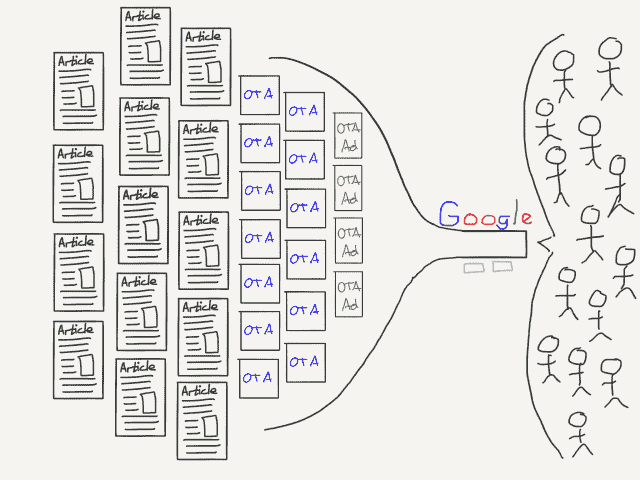 Article
Article
Article
Article
Article
Article
Article
Article
Article
Article
Article
Article
Article
Article
OTA
OTA
OTA
OTA
OTA
OTA
OTA
OTA
OTA
OTA
OTA
OTA
OTA
OTA
Ad
OTA
Ad
OTA
Ad
OTA
Ad
Google